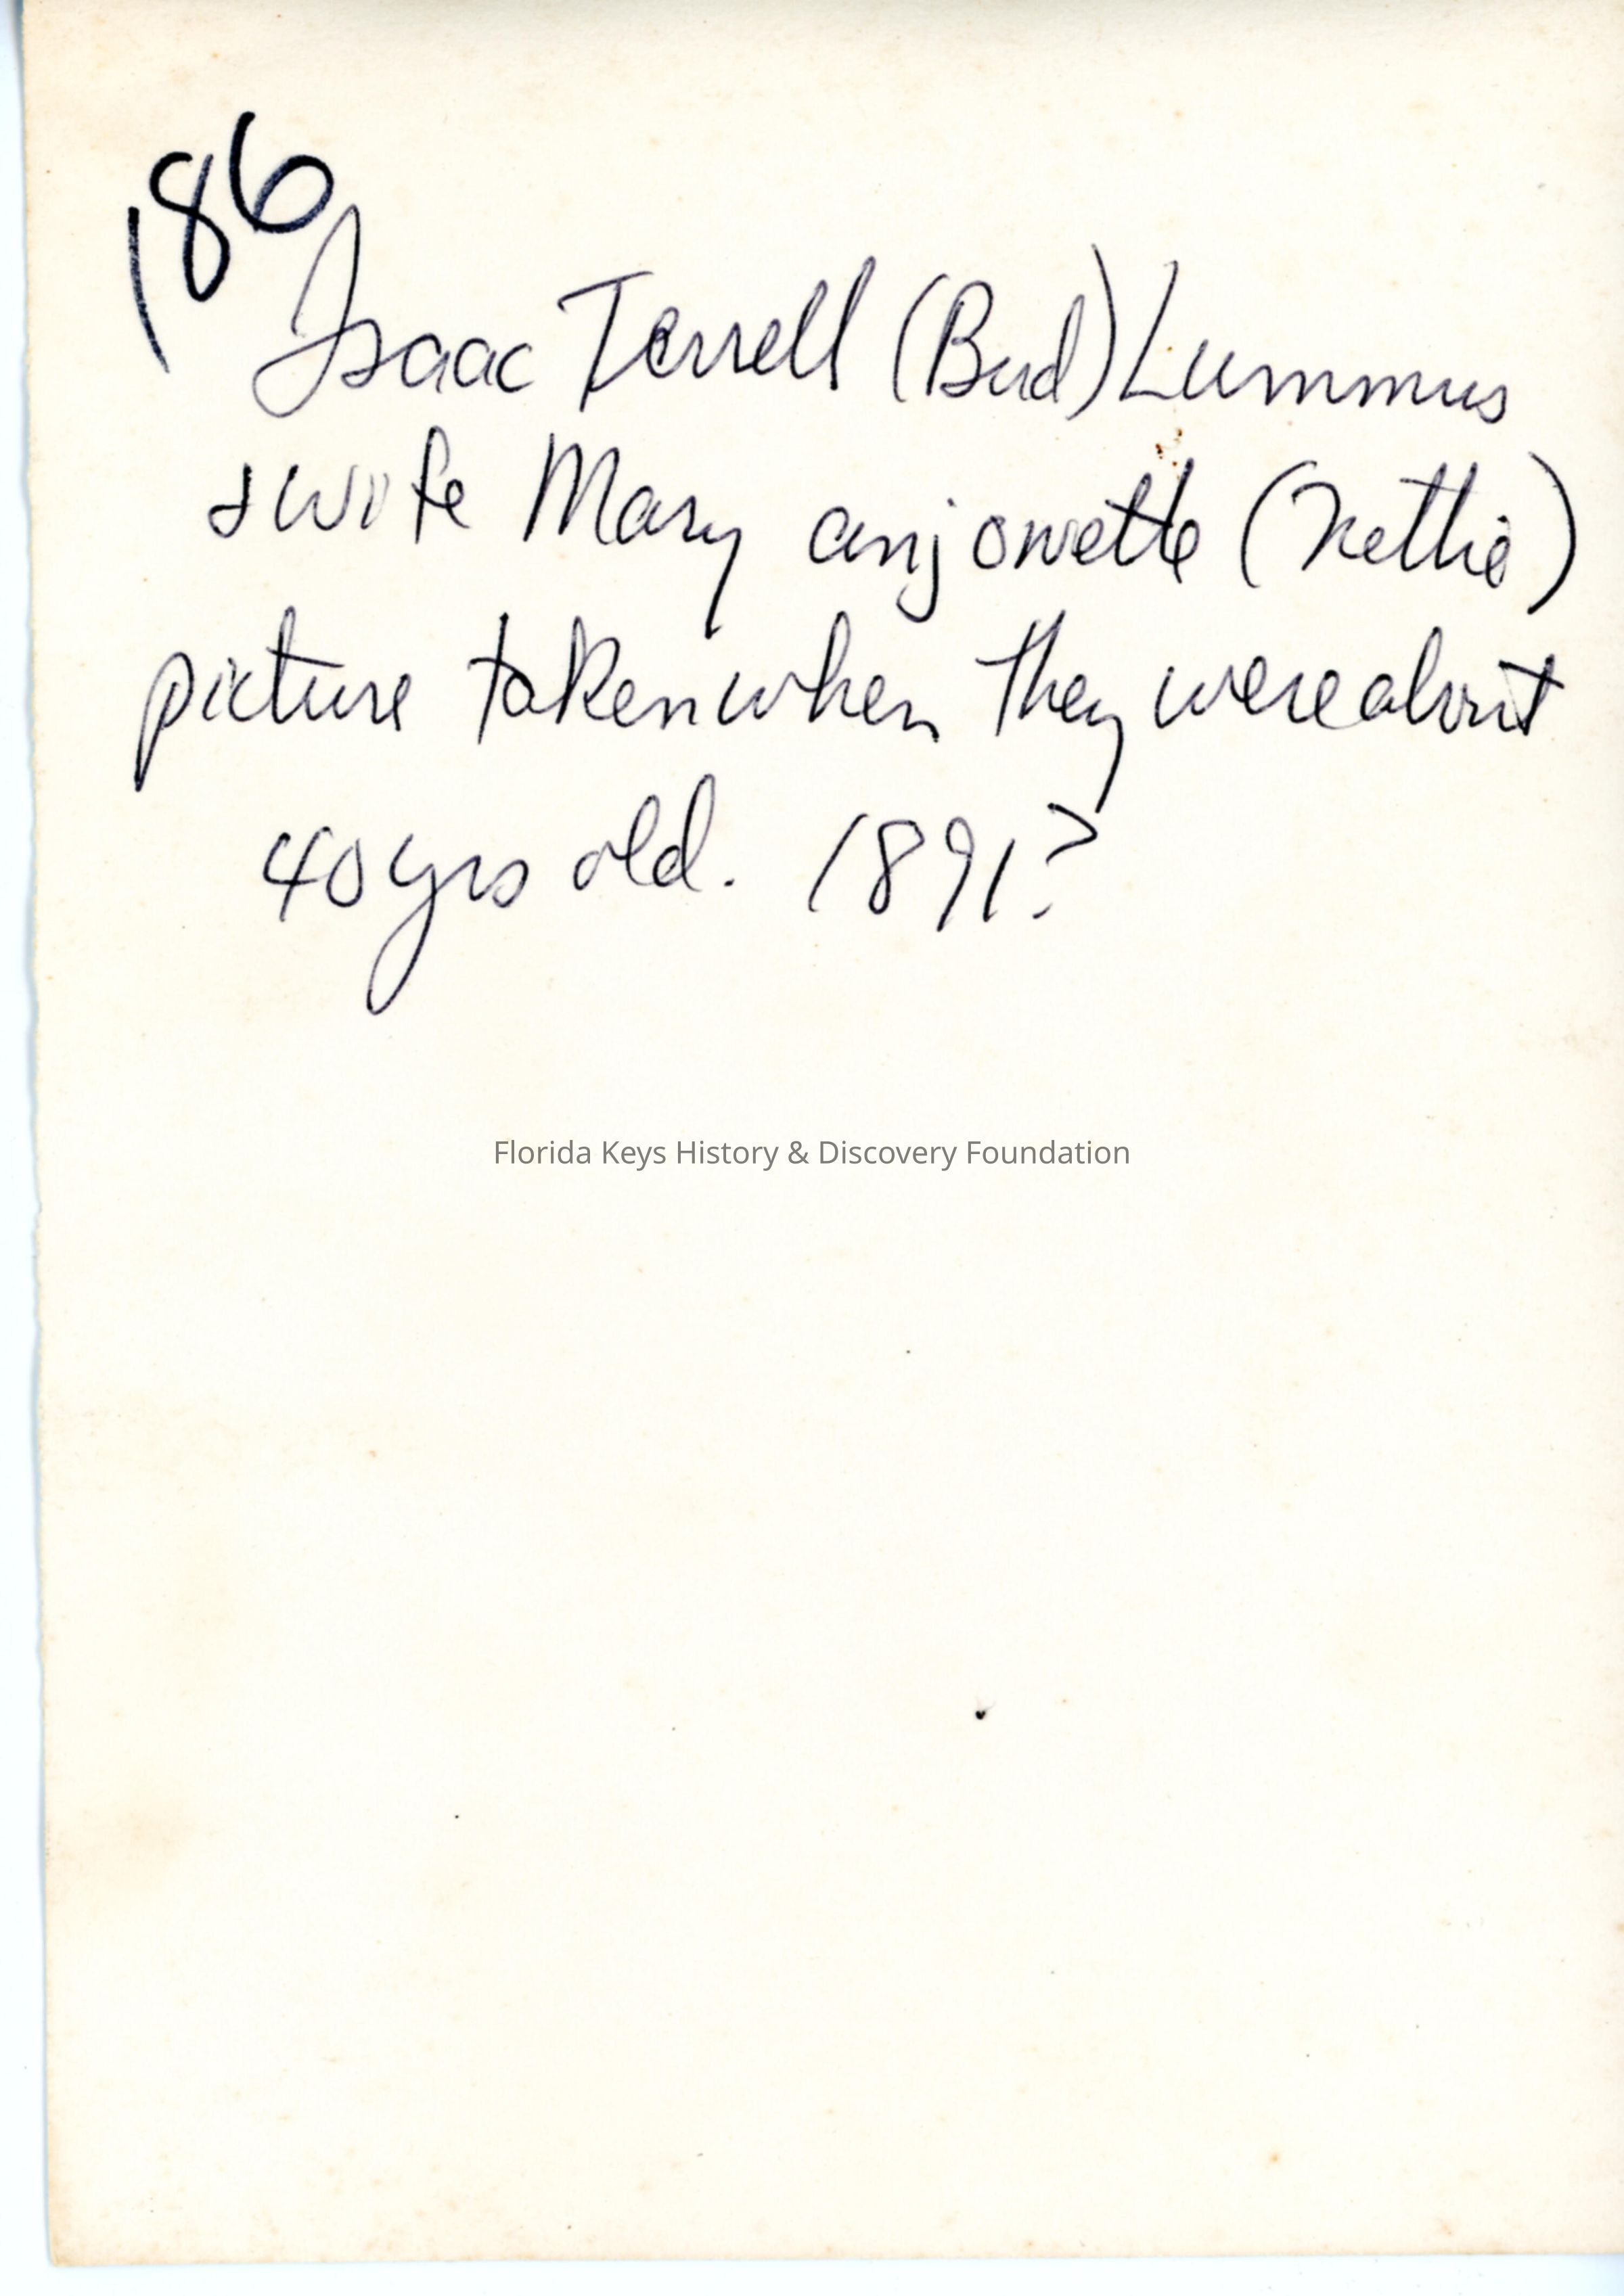 186
Isaac Terrell (Bud) Lummus
& wife Mary anjonette (Nettie)
picture taken when they were about
40 yrs old. 1891?
Florida Keys History & Discovery Foundation